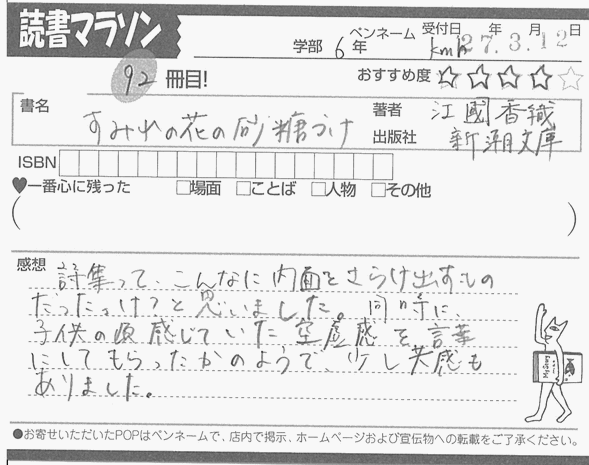 読書マラソン
学部 6年 ペンネーム kmh 受付日 27年 3月 12日
92 冊目! おすすめ度 ★★★★☆
書名 すみれの花の砂糖づけ 著者 江國香織
出版社 新潮文庫
ISBN
♥一番心に残った □場面 □ことば □人物 □その他
( )
感想
詩集って、こんなに内面をさらけ出すもの
だったっけ?と思いました。同時に、
子供の頃感じていた空虚感を言葉
にしてもらったかのようで、少し共感も
ありました。
●お寄せいただいたPOPはペンネームで、店内で掲示、ホームページおよび宣伝物への転載をご了承ください。